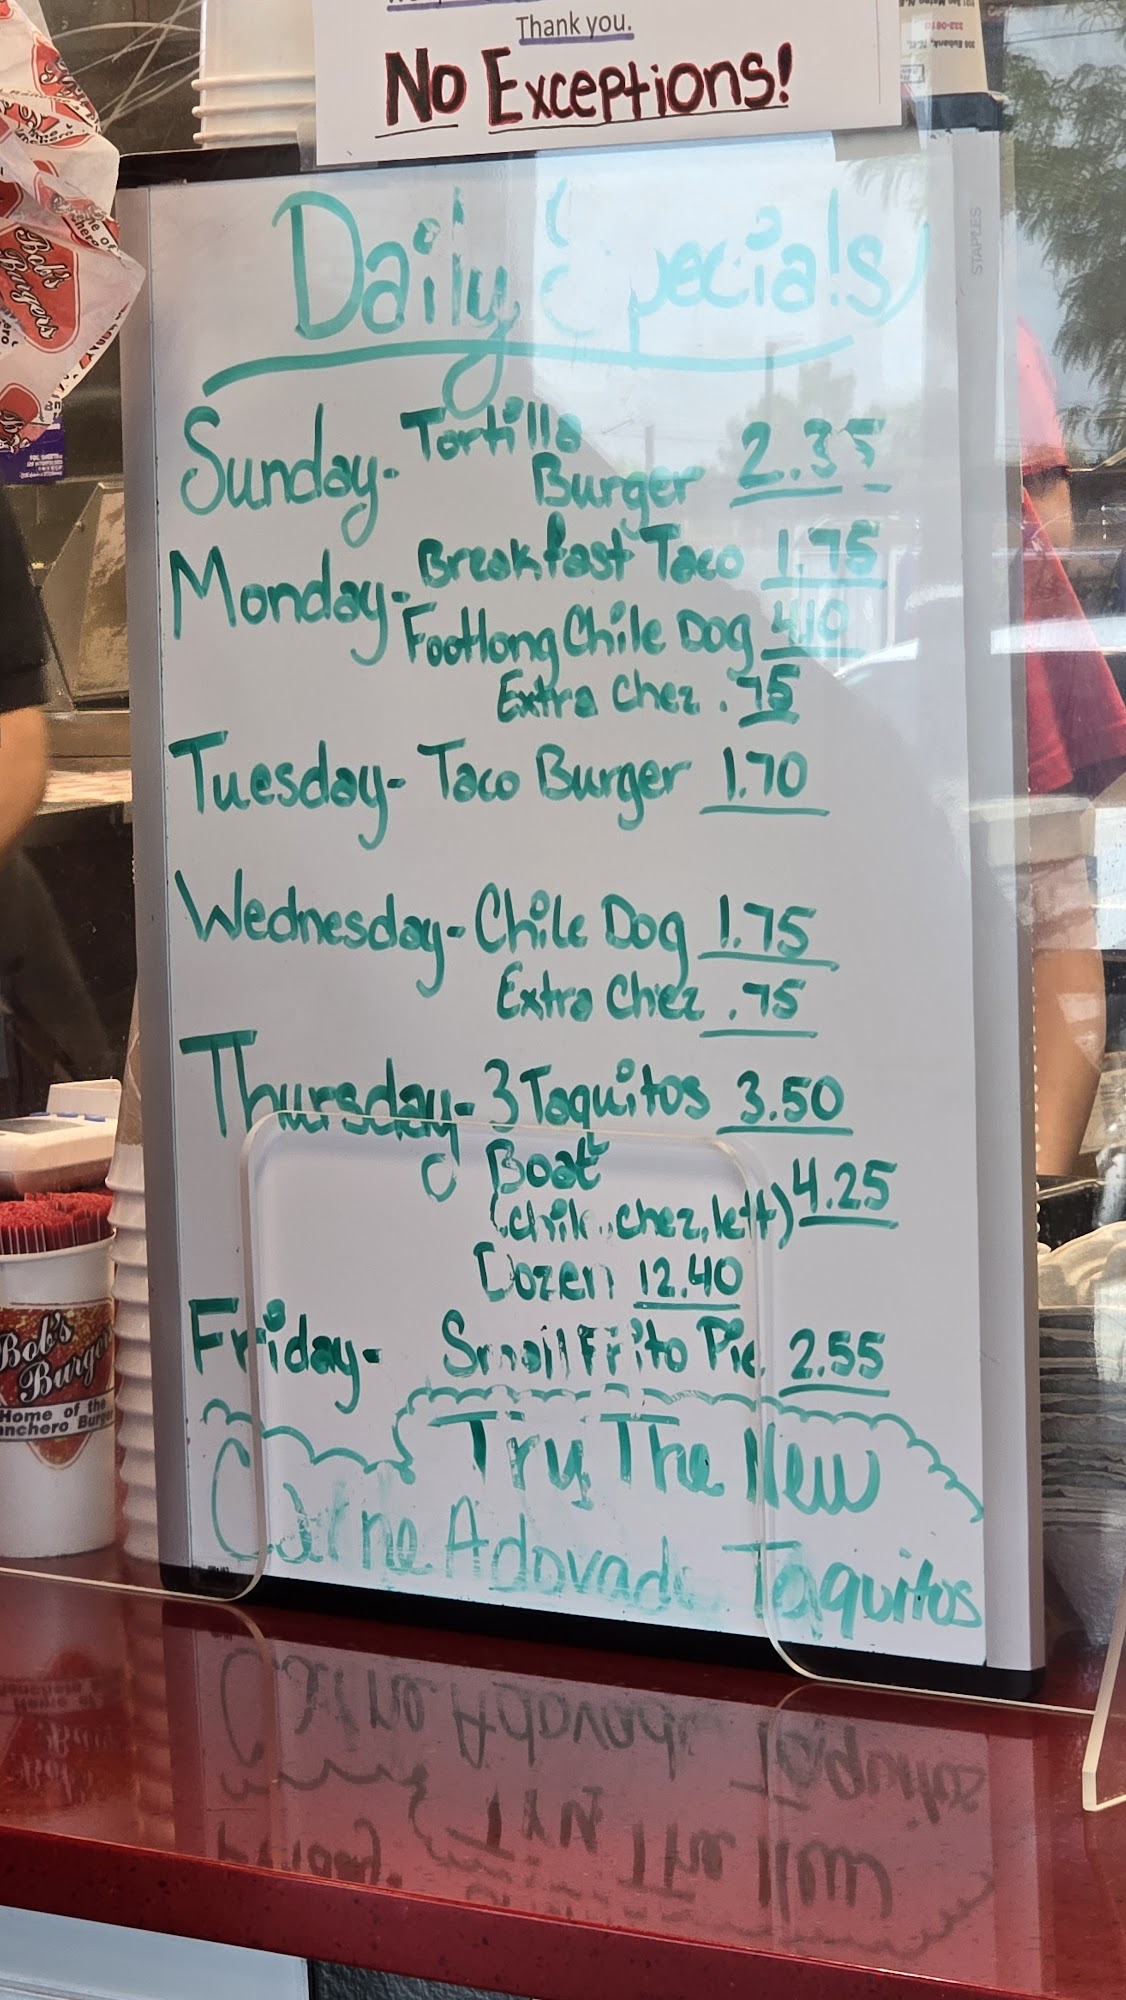 Thank you.
No Exceptions!
Daily Specials
Sunday- Tortilla
Burger 2.35
Monday- Breakfast Taco 1.75
Footlong Chile Dog 4.10
Extra Chez .75
Tuesday- Taco Burger 1.70
Wednesday- Chile Dog 1.75
Extra Chez .75
Thursday- 3 Taquitos 3.50
Boat
(chile, chez, lett) 4.25
Dozen 12.40
Friday- Small Frito Pie 2.55
Try The New
Carne Adovada Taquitos
STAPLES
Bob's
Burgers
Bob's
Burgers
Home of the
Ranchero Burger